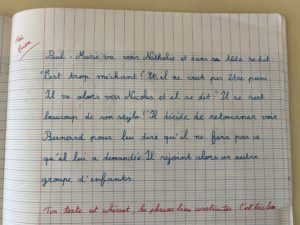 Très
Bien
Paul-Marie va voir Nathalie et dans sa tête se dit
"C'est trop méchant!" Et, il ne veut pas être puni.
Il va alors vers Nicolas et il se dit "Il se sert
beaucoup de son stylo!" Il décide de retourner voir
Bernard pour lui dire qu'il ne fera pas ce
qu'il lui a demandé. Il rejoint alors un autre
groupe d'enfants.
Ton texte est cohérent, les phrases bien construites. C'est très bien